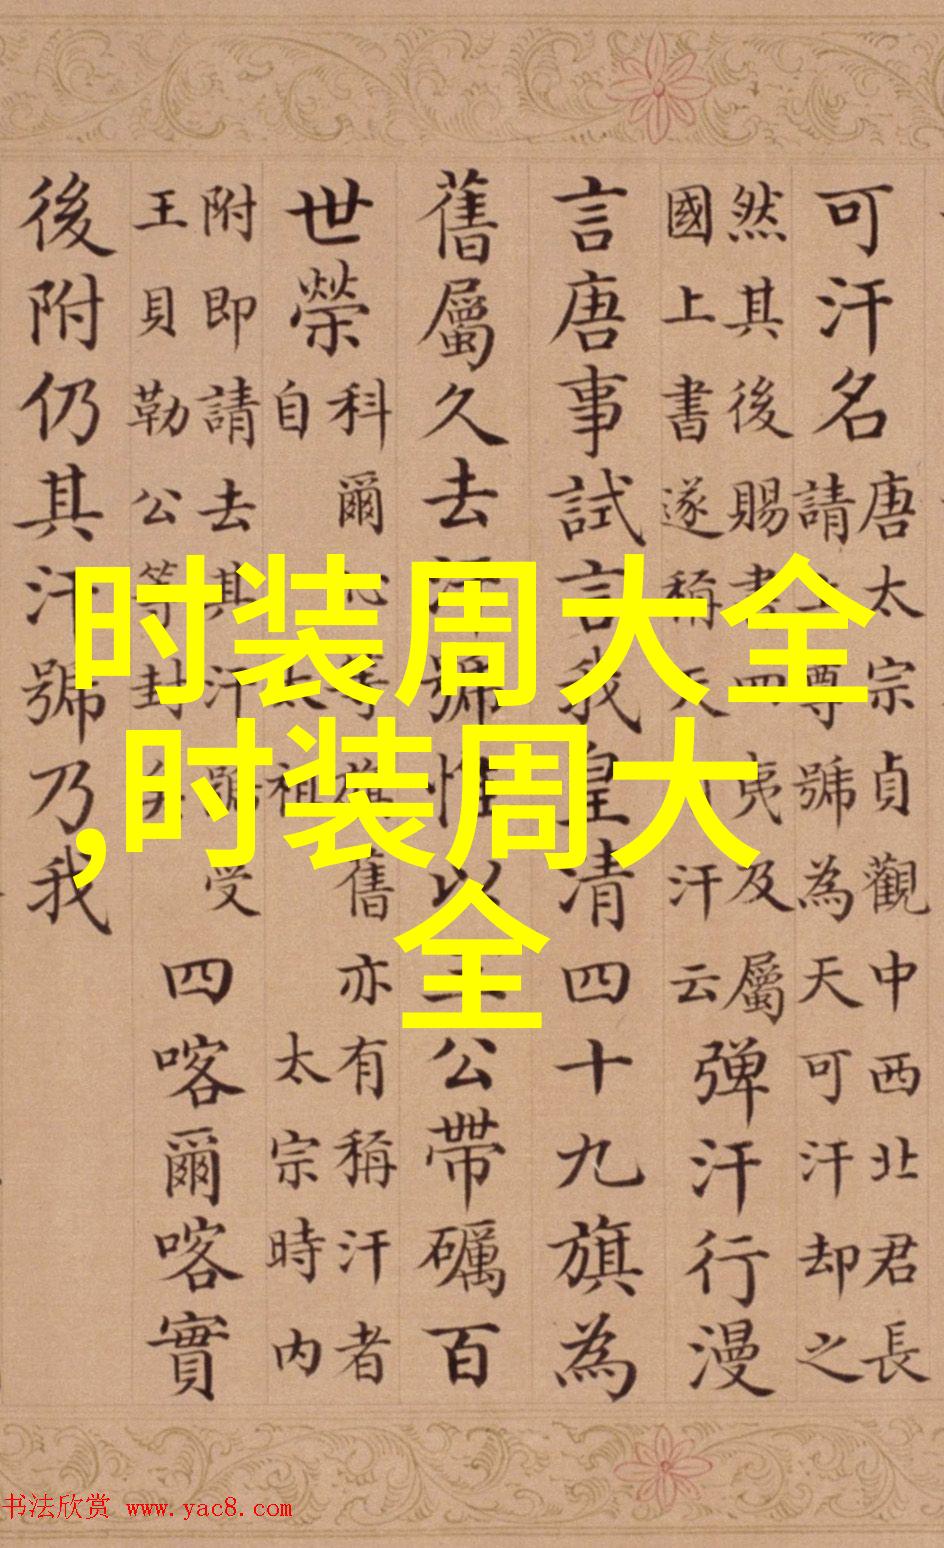 可汗名
唐太宗貞觀中西北君長
請上尊號為天可汗却之
然其後賜書四夷及屬
國上書遂稱天汗云
弾汗行漫
言唐事試言我皇清四十九旗為
舊屬久去汗號惟以王公帶礪百
世榮
科爾沁等旗舊亦有稱汗者
自太祖太宗時内
附即請去其汗號受
王貝勒公等封矣
四喀爾喀實
後附仍其汗號乃我
时装周大全
,时装周大
全
书法欣赏 www.yac8.com